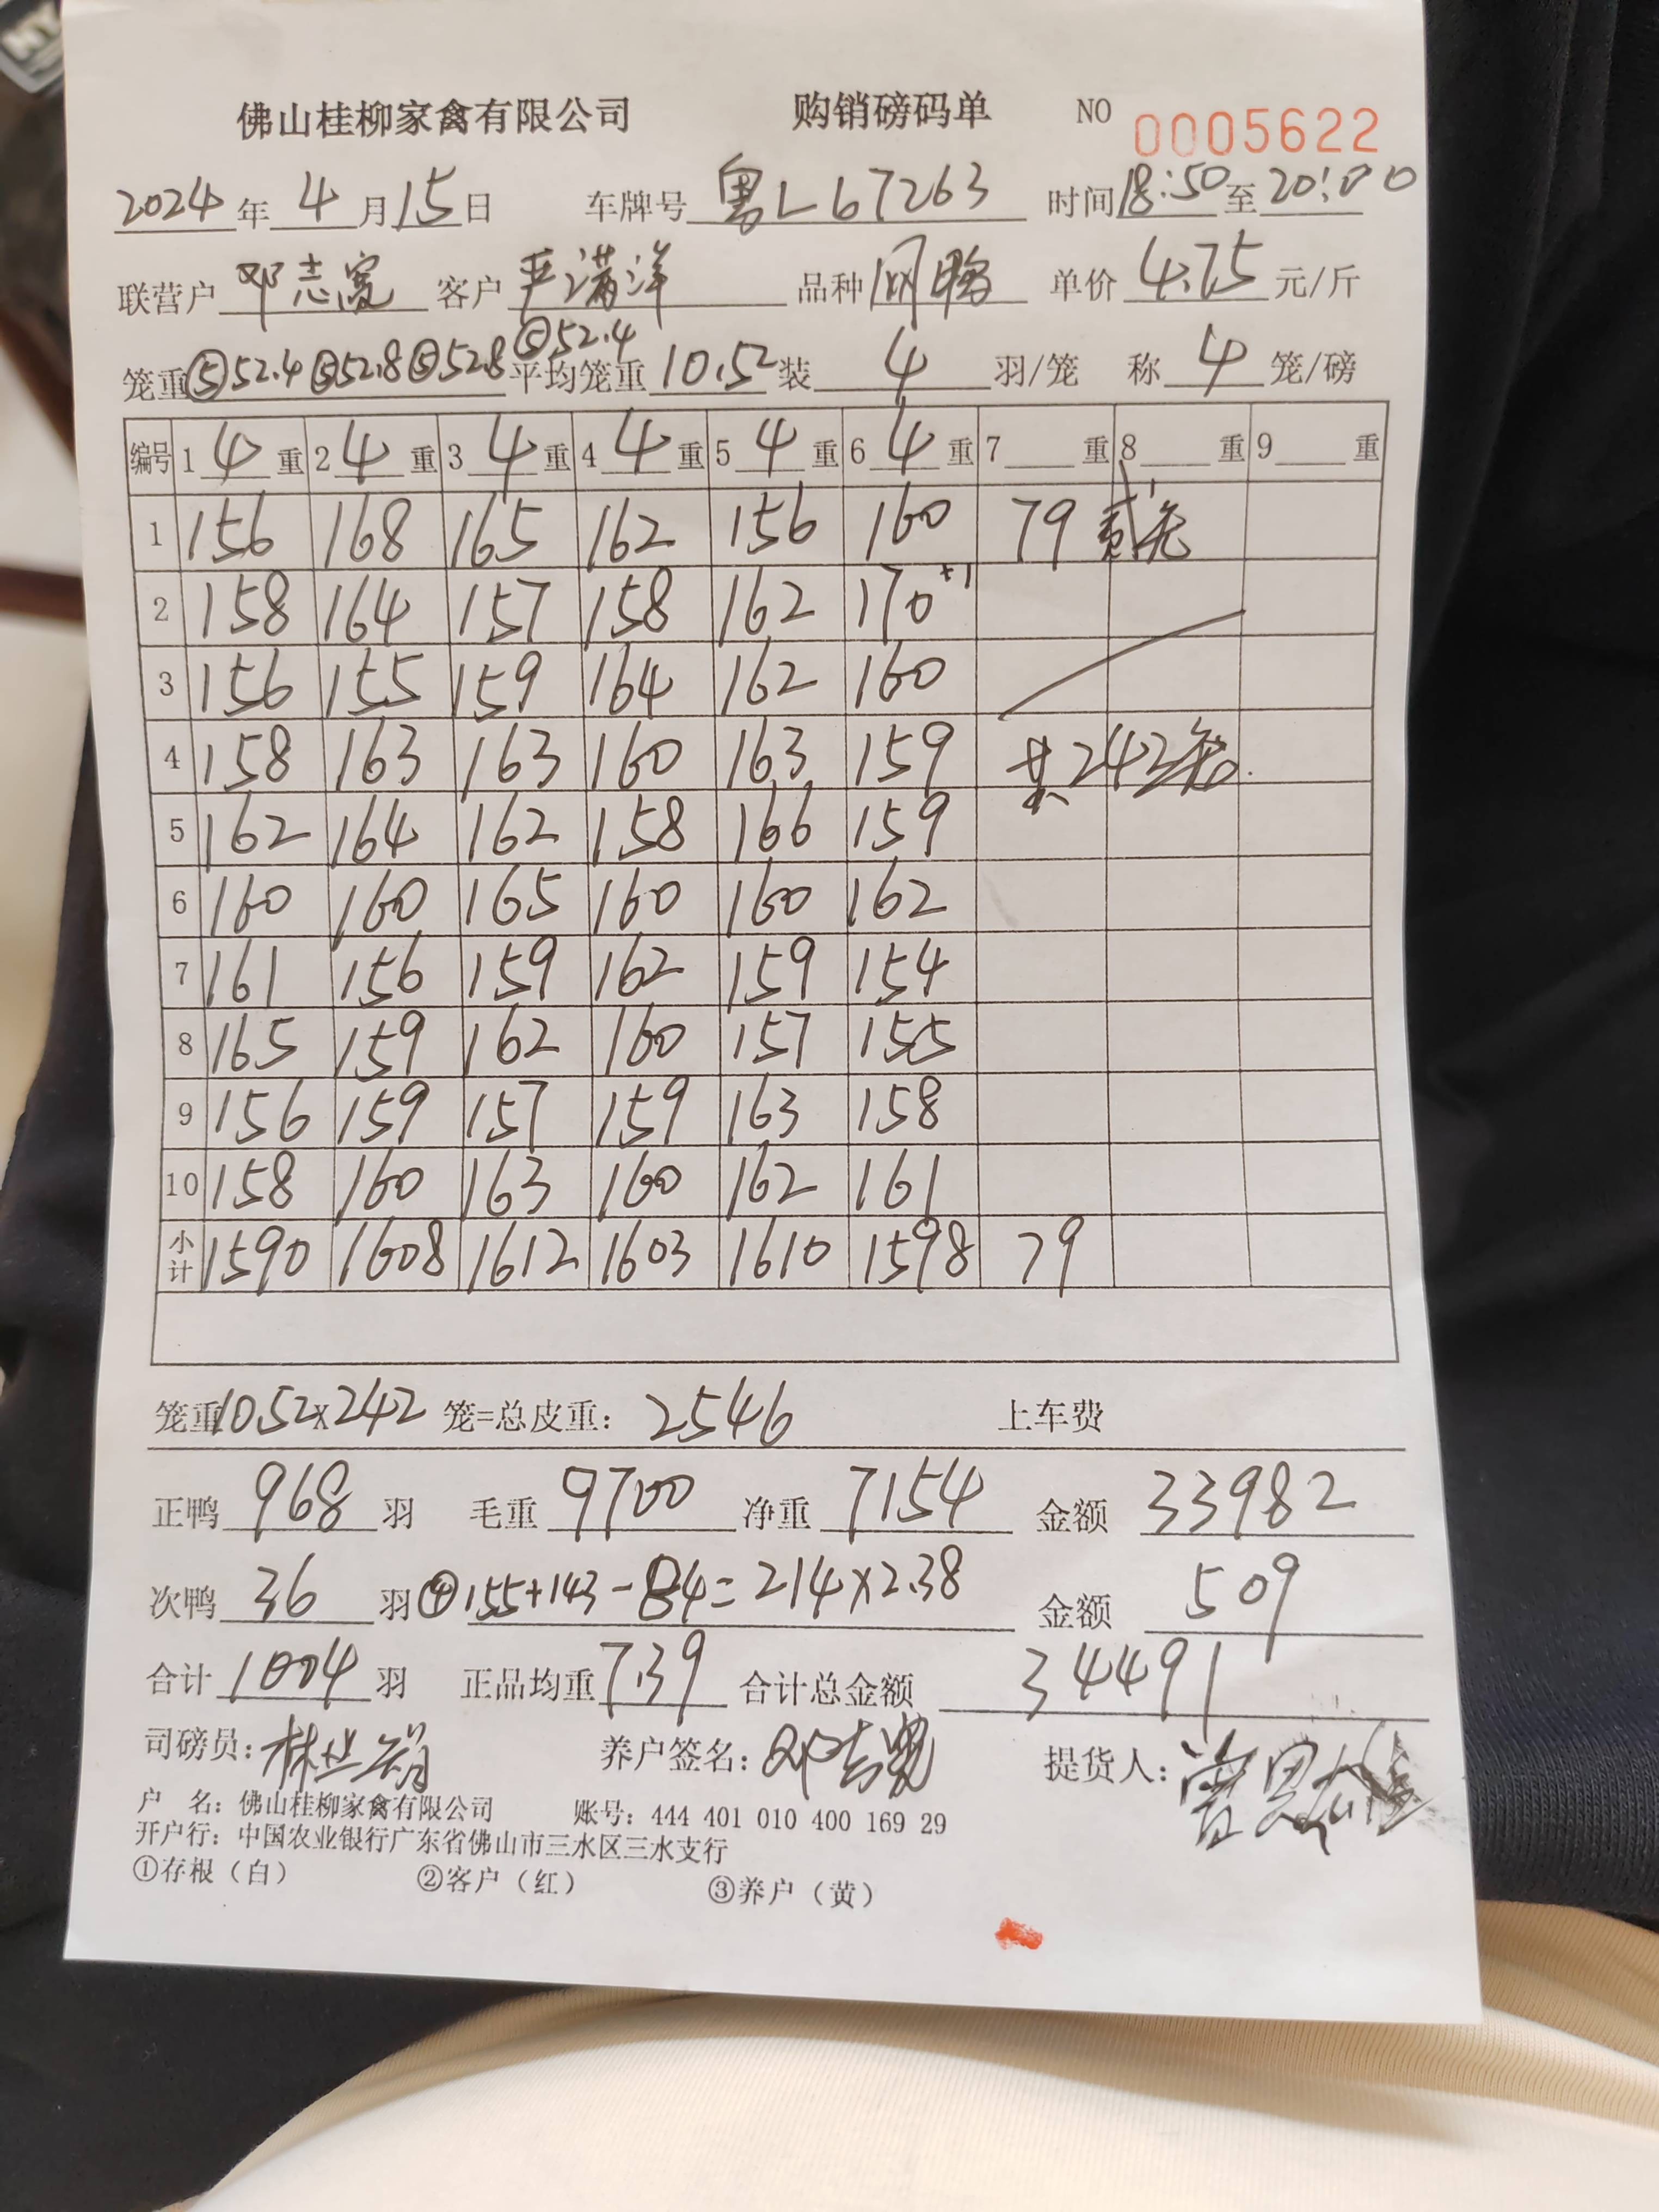 佛山桂柳家禽有限公司 购销磅码单 NO 0005622
2024年4月15日 车牌号 粤L67263 时间18:50至20:00
联营户 邓志宽 客户 严满洋 品种 单价 4.75 元/斤
笼重⑤52.4⑤52.8⑤52.8⑤52.4 平均笼重 10.52 装 4 羽/笼 称 4 笼/磅
编号 1 4 重 2 4 重 3 4 重 4 4 重 5 4 重 6 4 重 7 重 8 重 9 重
1 156 168 165 162 156 160 79 贰笼
2 158 164 157 158 162 170+1
3 156 155 159 164 162 160
4 158 163 163 160 163 159 共242笼.
5 162 164 162 158 166 159
6 160 160 165 160 160 162
7 161 156 159 162 159 154
8 165 159 162 160 157 155
9 156 159 157 159 163 158
10 158 160 163 160 162 161
小计 1590 1608 1612 1603 1610 1598 79
笼重10.52×242 笼=总皮重: 2546 上车费
正鸭 968 羽 毛重 9700 净重 7154 金额 33982
次鸭 36 羽 ④155+143-84=214×2.38 金额 509
合计 1004 羽 正品均重 7.39 合计总金额 34491
司磅员: 养户签名: 邓志宽 提货人:
户 名: 佛山桂柳家禽有限公司 账号: 444 401 010 400 169 29
开户行: 中国农业银行广东省佛山市三水区三水支行
①存根（白） ②客户（红） ③养户（黄）